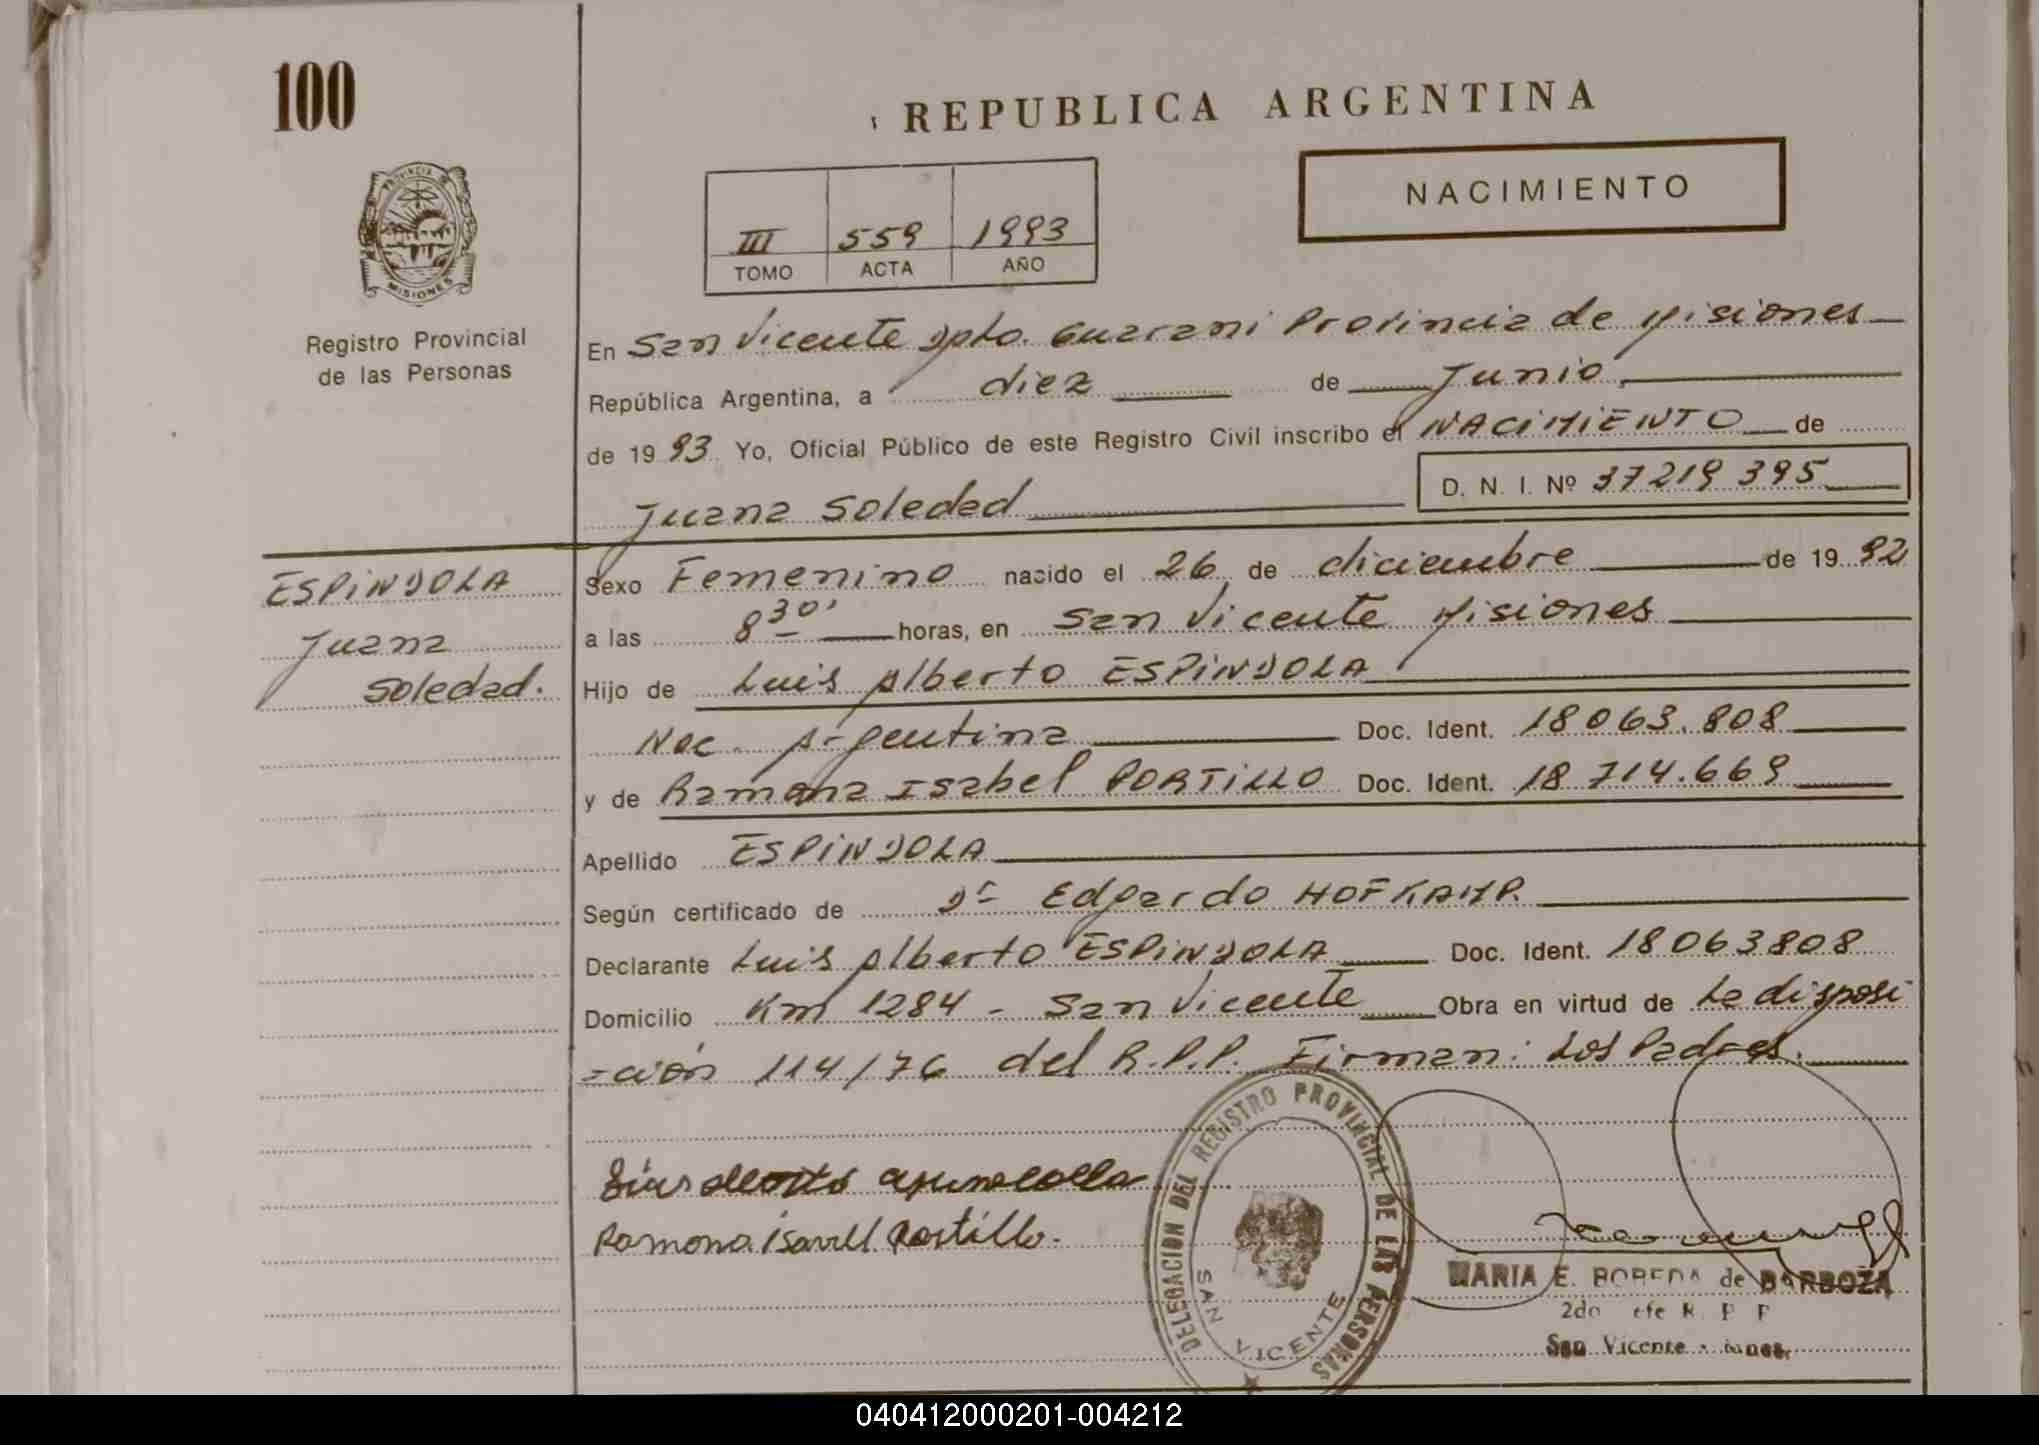 100
REPUBLICA ARGENTINA
PROVINCIA DE
MISIONES
Registro Provincial
de las Personas
III 559 1993
TOMO ACTA AÑO
NACIMIENTO
En San Vicente Dpto. Guarani Provincia de Misiones
República Argentina, a diez de Junio
de 1993 Yo, Oficial Público de este Registro Civil inscribo el NACIMIENTO de
Juana Soledad D. N. I. Nº 37219395
ESPINDOLA
Juana
Soledad.
Sexo Femenino nacido el 26 de diciembre de 1992
a las 8 30' horas, en San Vicente Misiones
Hijo de Luis Alberto ESPINDOLA
Nac. Argentina Doc. Ident. 18063.808
y de Ramona Isabel PORTILLO Doc. Ident. 18.714.669
Apellido ESPINDOLA
Según certificado de Dr Edgardo HOFKAMP.
Declarante Luis Alberto ESPINDOLA Doc. Ident. 18063808
Domicilio Km 1284 - San Vicente Obra en virtud de La disposi
=ción 114/76 del R.P.P. Firman: Los Padres.
Ramona isavell Portillo.
DELEGACION DEL REGISTRO PROVINCIAL DE LAS PERSONAS
SAN VICENTE
MARIA E. de BARBOZA
2do R. P. P
San Vicente
040412000201-004212